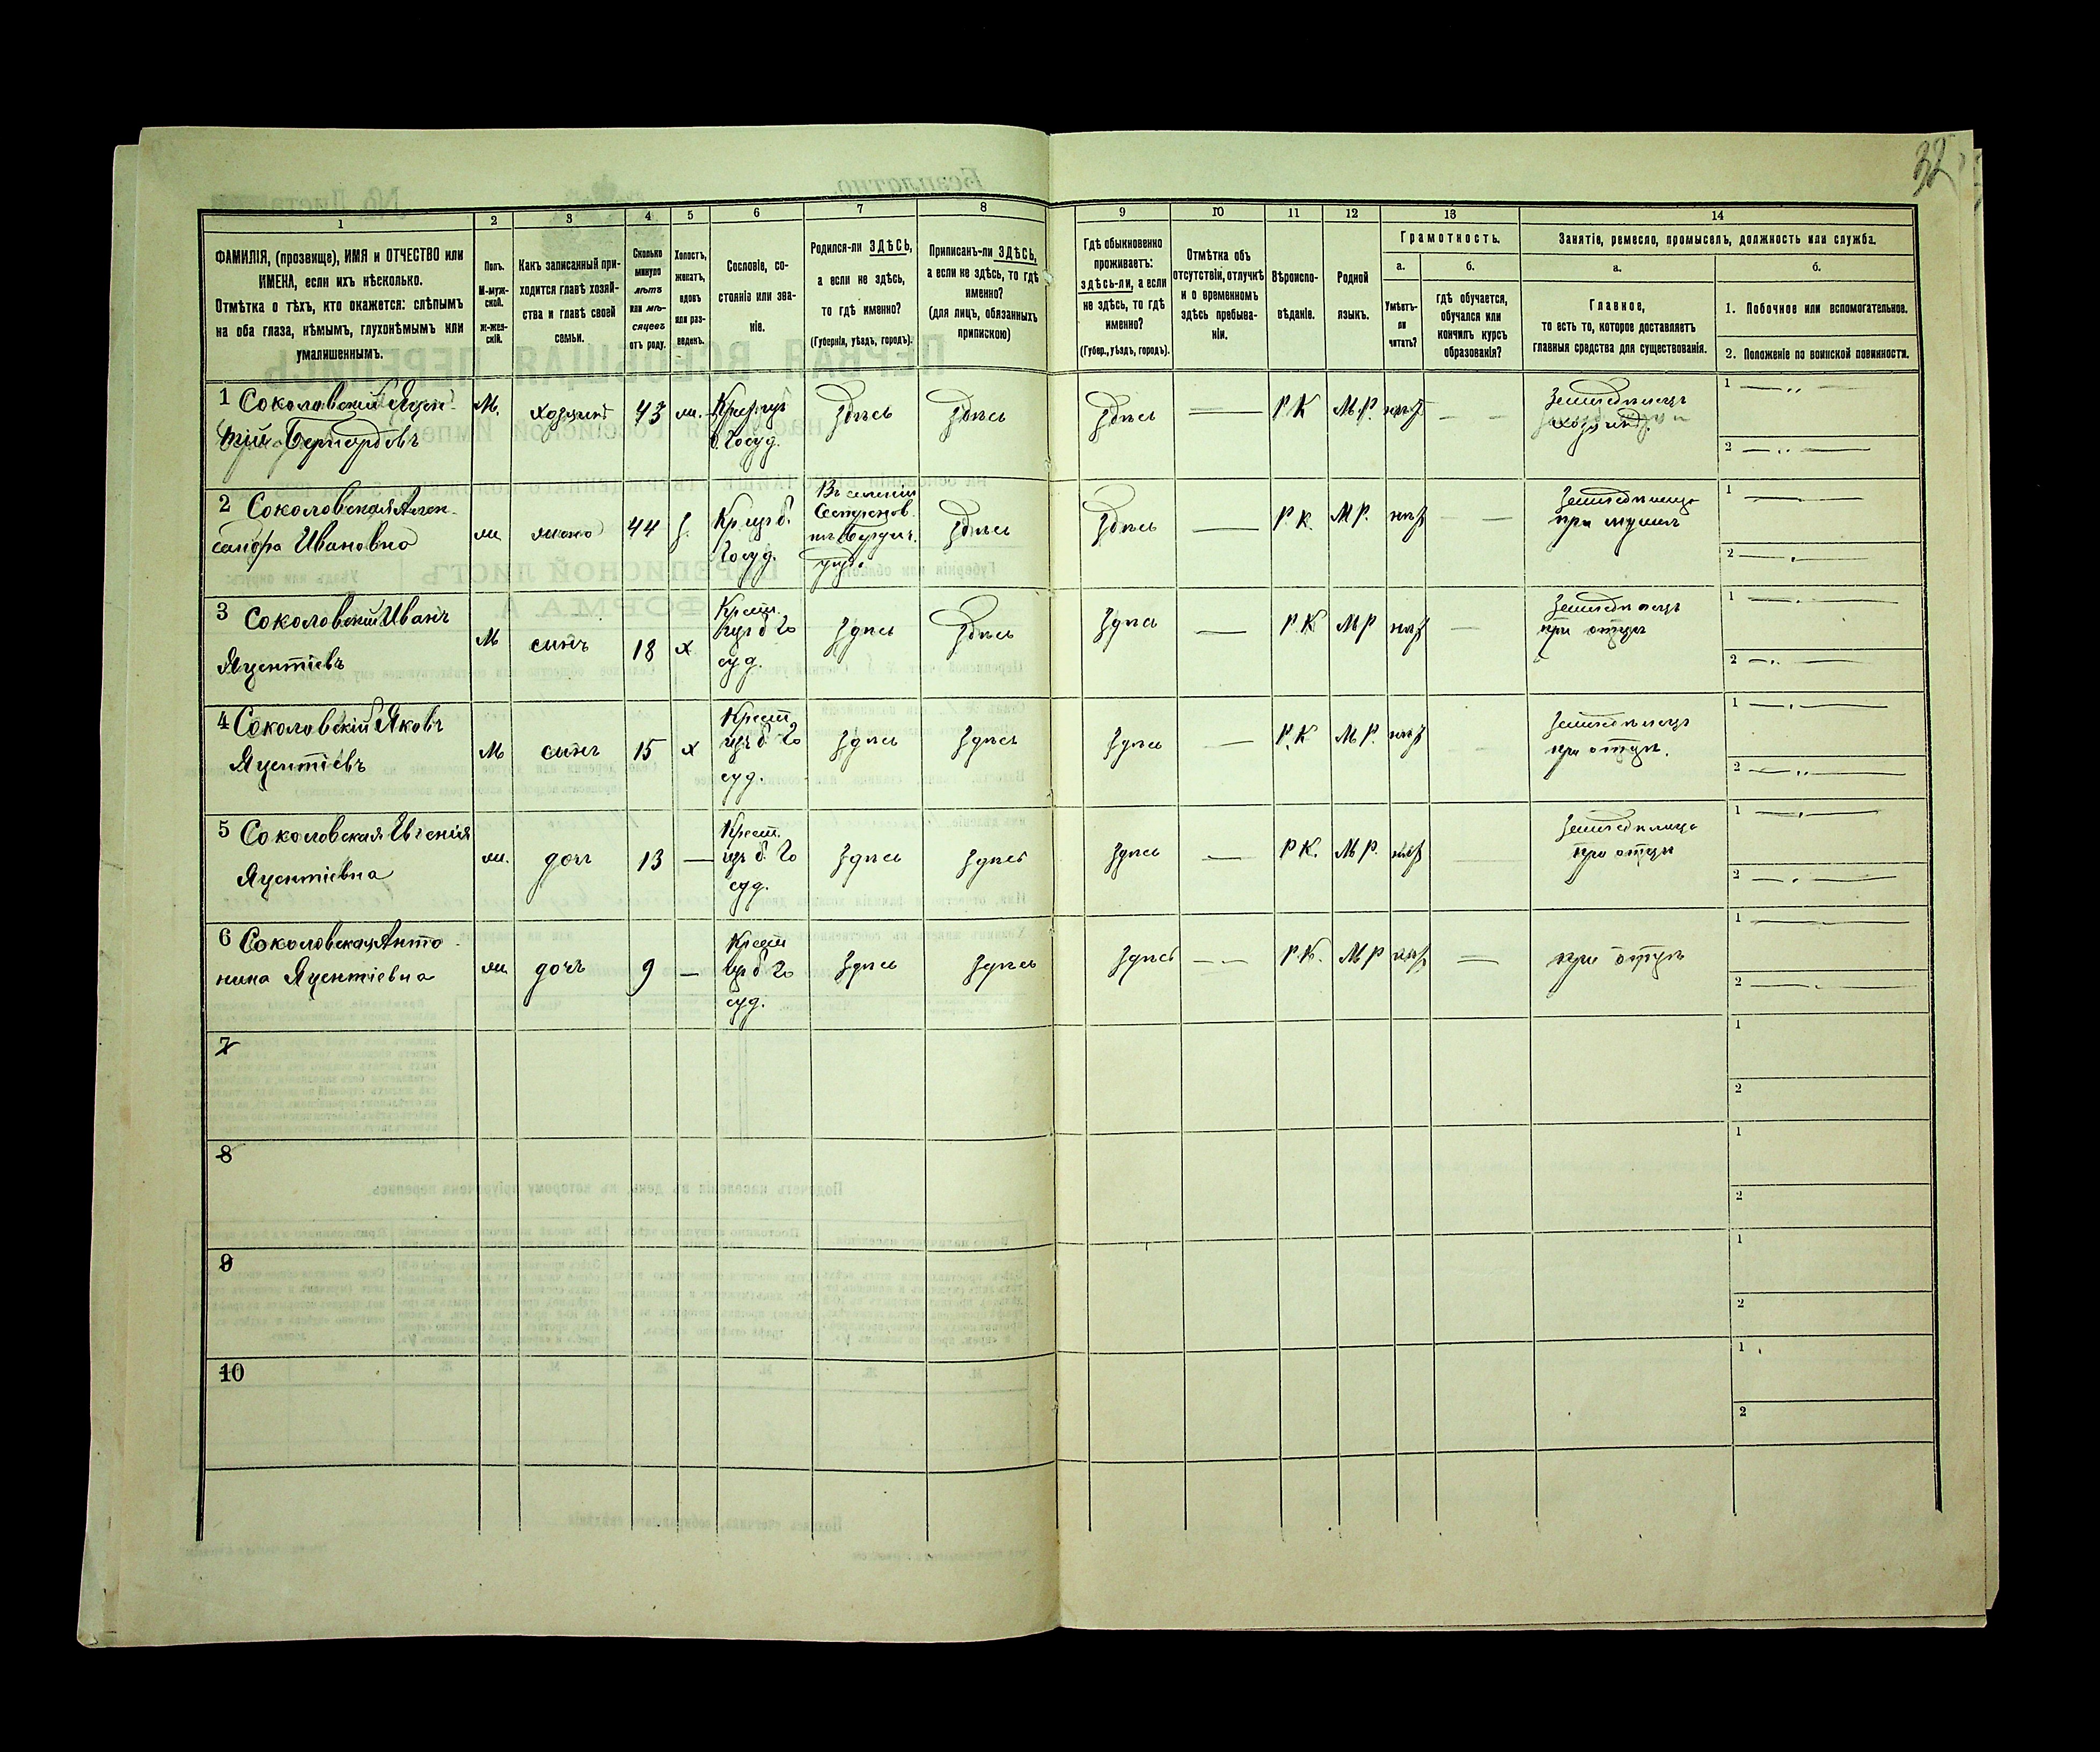 32
1 2 3 4 5 6 7 8 9 10 11 12 13 14
ФАМИЛІЯ, (прозвище), ИМЯ и ОТЧЕСТВО или
ИМЕНА, если ихъ нѣсколько.
Отмѣтка о тѣхъ, кто окажется: слѣпымъ
на оба глаза, нѣмымъ, глухонѣмымъ или
умалишеннымъ.
Полъ.
М-муж-
ской.
ж-жен-
скій.
Какъ записанный при-
ходится главѣ хозяй-
ства и главѣ своей
семьи.
Сколько
минуло
лѣтъ
или мѣ-
сяцевъ
отъ роду.
Холостъ,
женатъ,
вдовъ
или раз-
веденъ.
Сословіе, со-
стояніе или зва-
ніе.
Родился-ли ЗДѢСЬ,
а если не здѣсь,
то гдѣ именно?
(Губернія, уѣздъ, городъ).
Приписанъ-ли ЗДѢСЬ,
а если не здѣсь, то гдѣ
именно?
(для лицъ, обязанныхъ
припискою)
Гдѣ обыкновенно
проживаетъ:
здѣсь-ли, а если
не здѣсь, то гдѣ
именно?
(Губер., уѣздъ, городъ).
Отмѣтка объ
отсутствіи, отлучкѣ
и о временномъ
здѣсь пребыва-
ніи.
Вѣроиспо-
вѣданіе.
Родной
языкъ.
Грамотность.
а.
Умѣетъ-
ли
читать?
б.
гдѣ обучается,
обучался или
кончилъ курсъ
образованія?
Занятіе, ремесло, промыселъ, должность или служба.
а.
Главное,
то есть то, которое доставляетъ
главныя средства для существованія.
б.
1. Побочное или вспомогательное.
2. Положеніе по воинской повинности.
1 Соколовскій Яцен-
тій Бернардовъ
М.
хозяинъ
43
ж.
б. Госуд.
здѣсь
здѣсь
здѣсь
—
Р.К
М.Р.
нѣтъ
— —
Земледѣлецъ
хозяинъ
1 — „ —
2 — „ —
2 Соколовская Алек-
сандра Ивановна
ж
жена
44
Кр. изъ б.
Госуд.
Въ селеніи
уѣзд.
здѣсь
здѣсь
—
Р.К.
М Р.
нѣтъ
— —
Земледѣлица
при мужѣ
1 —
2 —
3 Соколовскій Иванъ
Яцентіевъ
М
сынъ
18
х
Крест.
изъ б. Го
суд.
здѣсь
здѣсь
здѣсь
—
Р.К
М Р
нѣтъ
—
Земледѣлецъ
при отцѣ
1 —
2 —
4 Соколовскій Яковъ
Яцентіевъ
М
сынъ
15
х
Крест
изъ б. Го
суд.
здѣсь
здѣсь
здѣсь
—
Р.К
М.Р.
нѣтъ
Земледѣлецъ
при отцѣ.
1 —
2 —
5 Соколовская Евгенія
Яцентіевна
ж.
дочь
13
—
Крест.
изъ б. Го
суд.
здѣсь
здѣсь
здѣсь
—
Р.К.
М.Р.
нѣтъ
Земледѣлица
при отцѣ
1 —
2 —
6 Соколовская Анто-
нина Яцентіевна
ж
дочь
9
—
Крест
изъ б. Го
суд.
здѣсь
здѣсь
здѣсь
— —
Р.К.
М Р
нѣтъ
—
при отцѣ
1 —
2 —
7
1
2
8
1
2
9
1
2
10
1
2